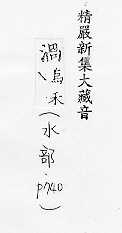 精嚴新集大藏音
渦 烏禾（水部．p740）